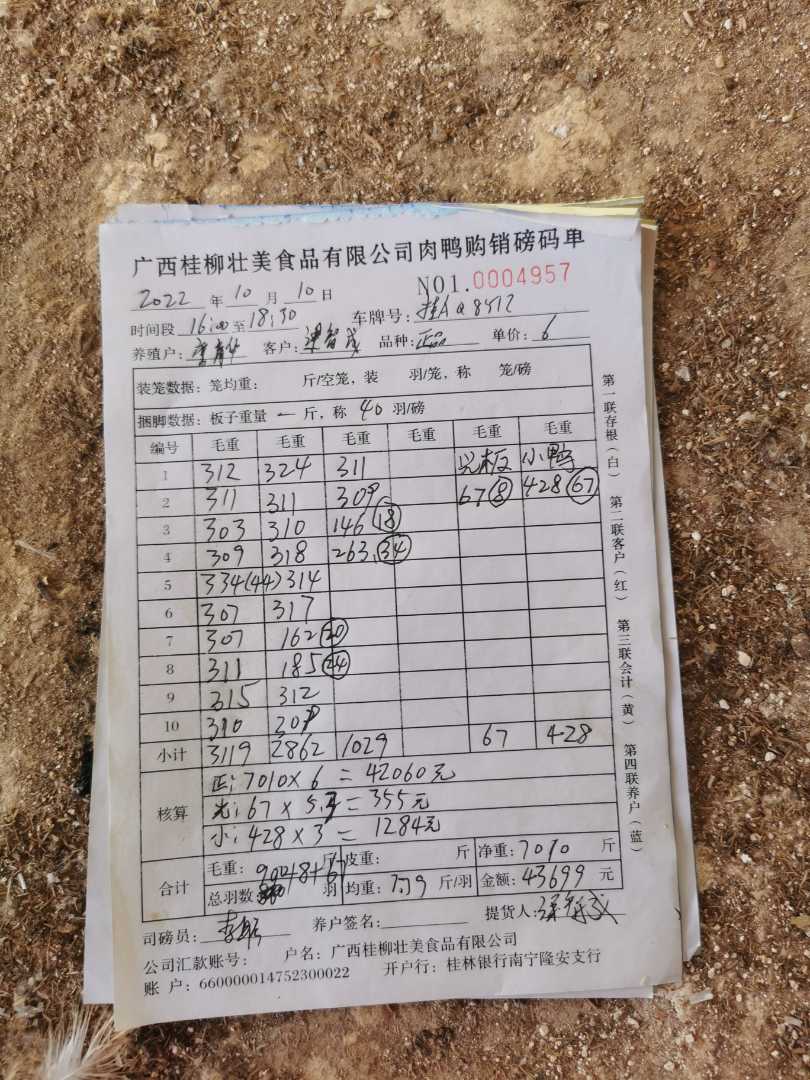 广西桂柳壮美食品有限公司肉鸭购销磅码单
NO1.0004957
2022 年 10 月 10 日
时间段 16:00 至 18:30 车牌号: 桂A Q8512
养殖户: 客户: 梁智茂 品种: 正品 单价: 6
装笼数据: 笼均重: 斤/空笼, 装 羽/笼, 称 笼/磅
捆脚数据: 板子重量 一 斤, 称 40 羽/磅
编号 毛重 毛重 毛重 毛重 毛重 毛重
1 312 324 311 光板 小鸭
2 311 311 309 67 (8) 428 (67)
3 303 310 146 (18)
4 309 318 263 (34)
5 334(44) 314
6 307 317
7 307 162 (20)
8 311 185 (24)
9 315 312
10 310 309
小计 3119 2862 1029 67 428
核算
正: 7010 × 6 = 42060元
光: 67 × 5.3 = 355元
小: 428 × 3 = 1284元
合计
毛重: 斤 皮重: 斤 净重: 7010 斤
总羽数 羽 均重: 7.79 斤/羽 金额: 43699 元
司磅员: 养户签名: 提货人:
公司汇款账号: 户名: 广西桂柳壮美食品有限公司
账 户: 660000014752300022 开户行: 桂林银行南宁隆安支行
第一联存根(白) 第二联客户(红) 第三联会计(黄) 第四联养户(蓝)